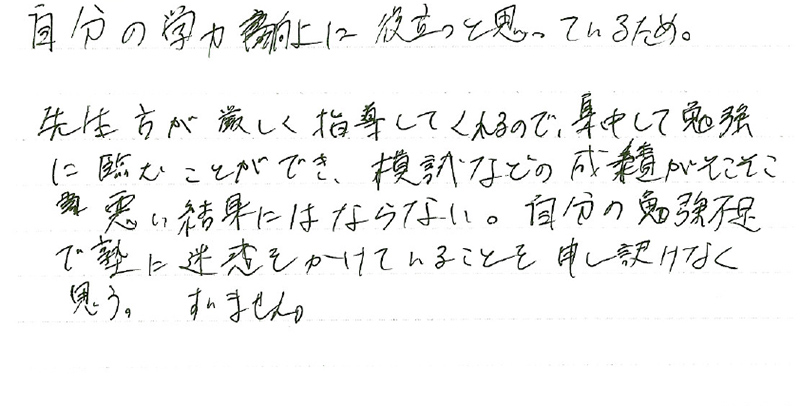 自分の学力向上に役立つと思っているため。
先生方が厳しく指導してくれるので、集中して勉強
に臨むことができ、模試などの成績がそこそこ
悪い結果にはならない。自分の勉強不足
で塾に迷惑をかけていることを申し訳けなく
思う。 すいません。